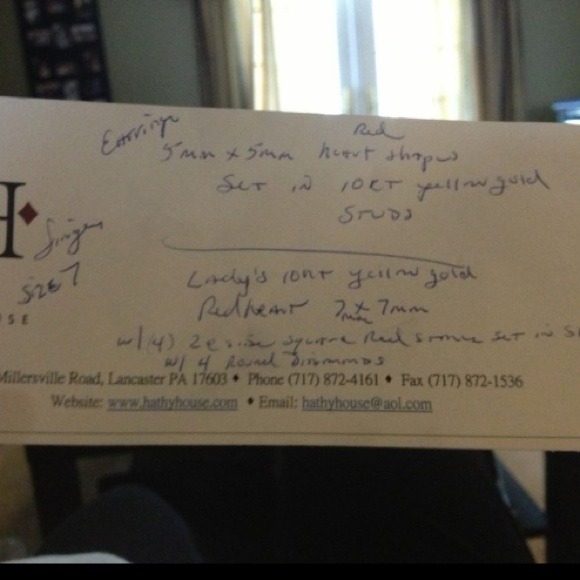 Earrings
Red
5mm x 5mm heart shaped
Set in 10KT yellow gold
Studs
H
Size 7
Lady's 10KT yellow gold
Red heart 7mm x 7mm
w/ (4) square Red stones set in
w/ 4 Round Diamonds
Millersville Road, Lancaster PA 17603 ♦ Phone (717) 872-4161 ♦ Fax (717) 872-1536
Website: www.hathyhouse.com ♦ Email: hathyhouse@aol.com